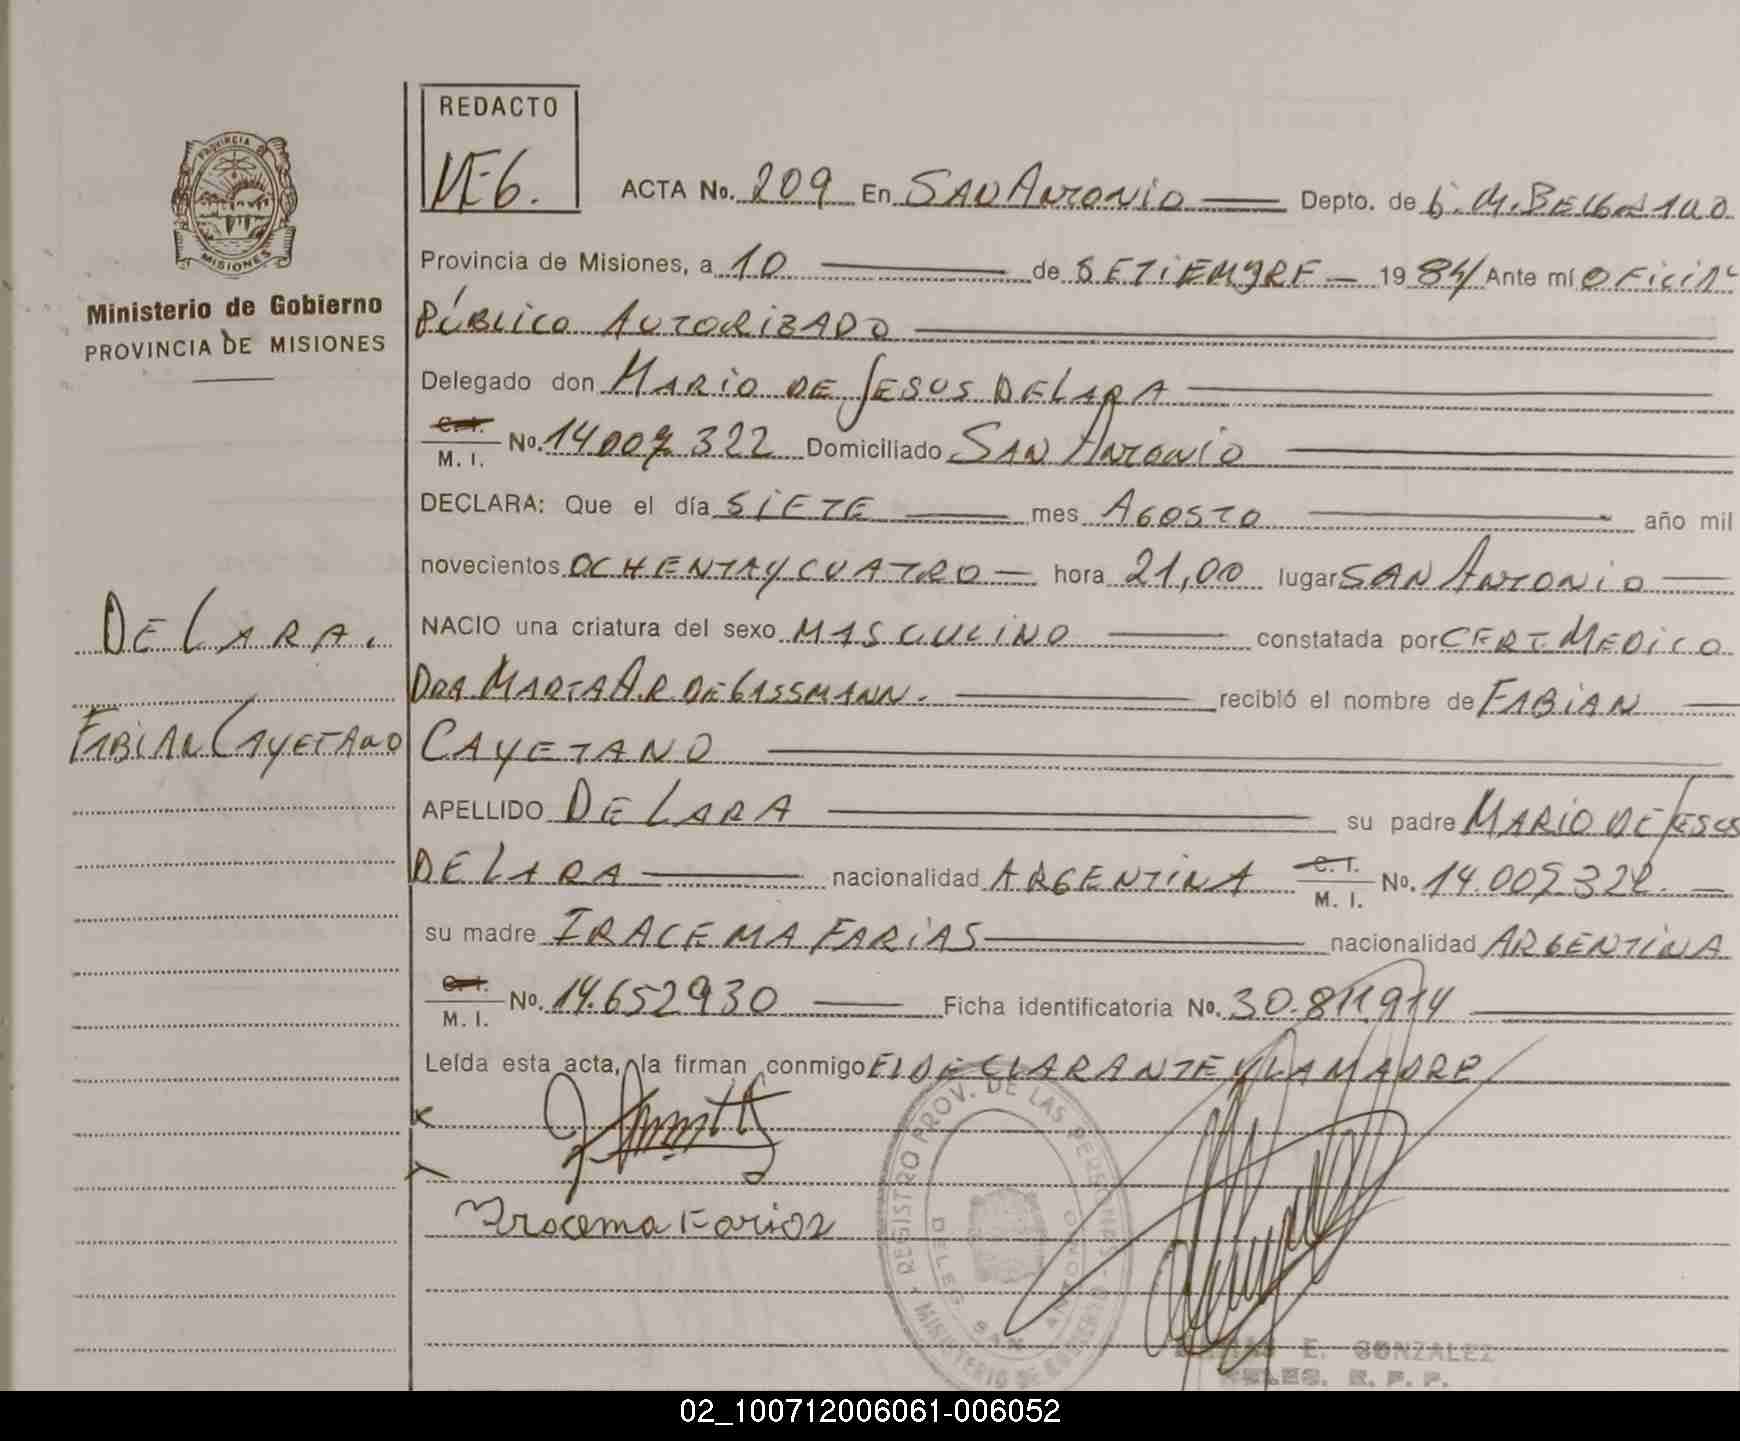 REDACTO
VE-6.
ACTA No. 209 En SAN ANTONIO Depto. de G. M. BELGRANO
PROVINCIA DE MISIONES
Ministerio de Gobierno
PROVINCIA DE MISIONES
Provincia de Misiones, a 10 de SETIEMBRE 1984 Ante mí OFICIAL
PÚBLICO AUTORIZADO
Delegado don MARIO DE JESUS DE LARA
C. I.
M. I. No. 14007322 Domiciliado SAN ANTONIO
DECLARA: Que el día SIETE mes AGOSTO año mil
novecientos OCHENTA Y CUATRO hora 21,00 lugar SAN ANTONIO
DE LARA.
NACIO una criatura del sexo MASCULINO constatada por CERT. MEDICO
DRA. MARTA A.R. DE GASSMANN. recibió el nombre de FABIAN
FABIAN CAYETANO
CAYETANO
APELLIDO DE LARA su padre MARIO DE JESUS
DE LARA nacionalidad ARGENTINA C. I.
M. I. No. 14.009322.
su madre IRACEMA FARIAS nacionalidad ARGENTINA
C. I.
M. I. No. 14.652930 Ficha identificatoria No. 30.811914
Leída esta acta, la firman conmigo EL DECLARANTE Y LA MADRE
Iracema Farias
REGISTRO PROV. DE LAS PERSONAS
MINISTERIO DE GOBIERNO
DELEG. SAN ANTONIO
E. GONZALEZ
DELEG. R. P. P.
02_100712006061-006052